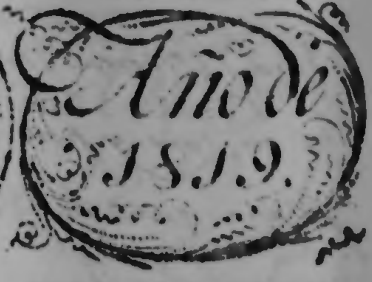 Año de
1819.